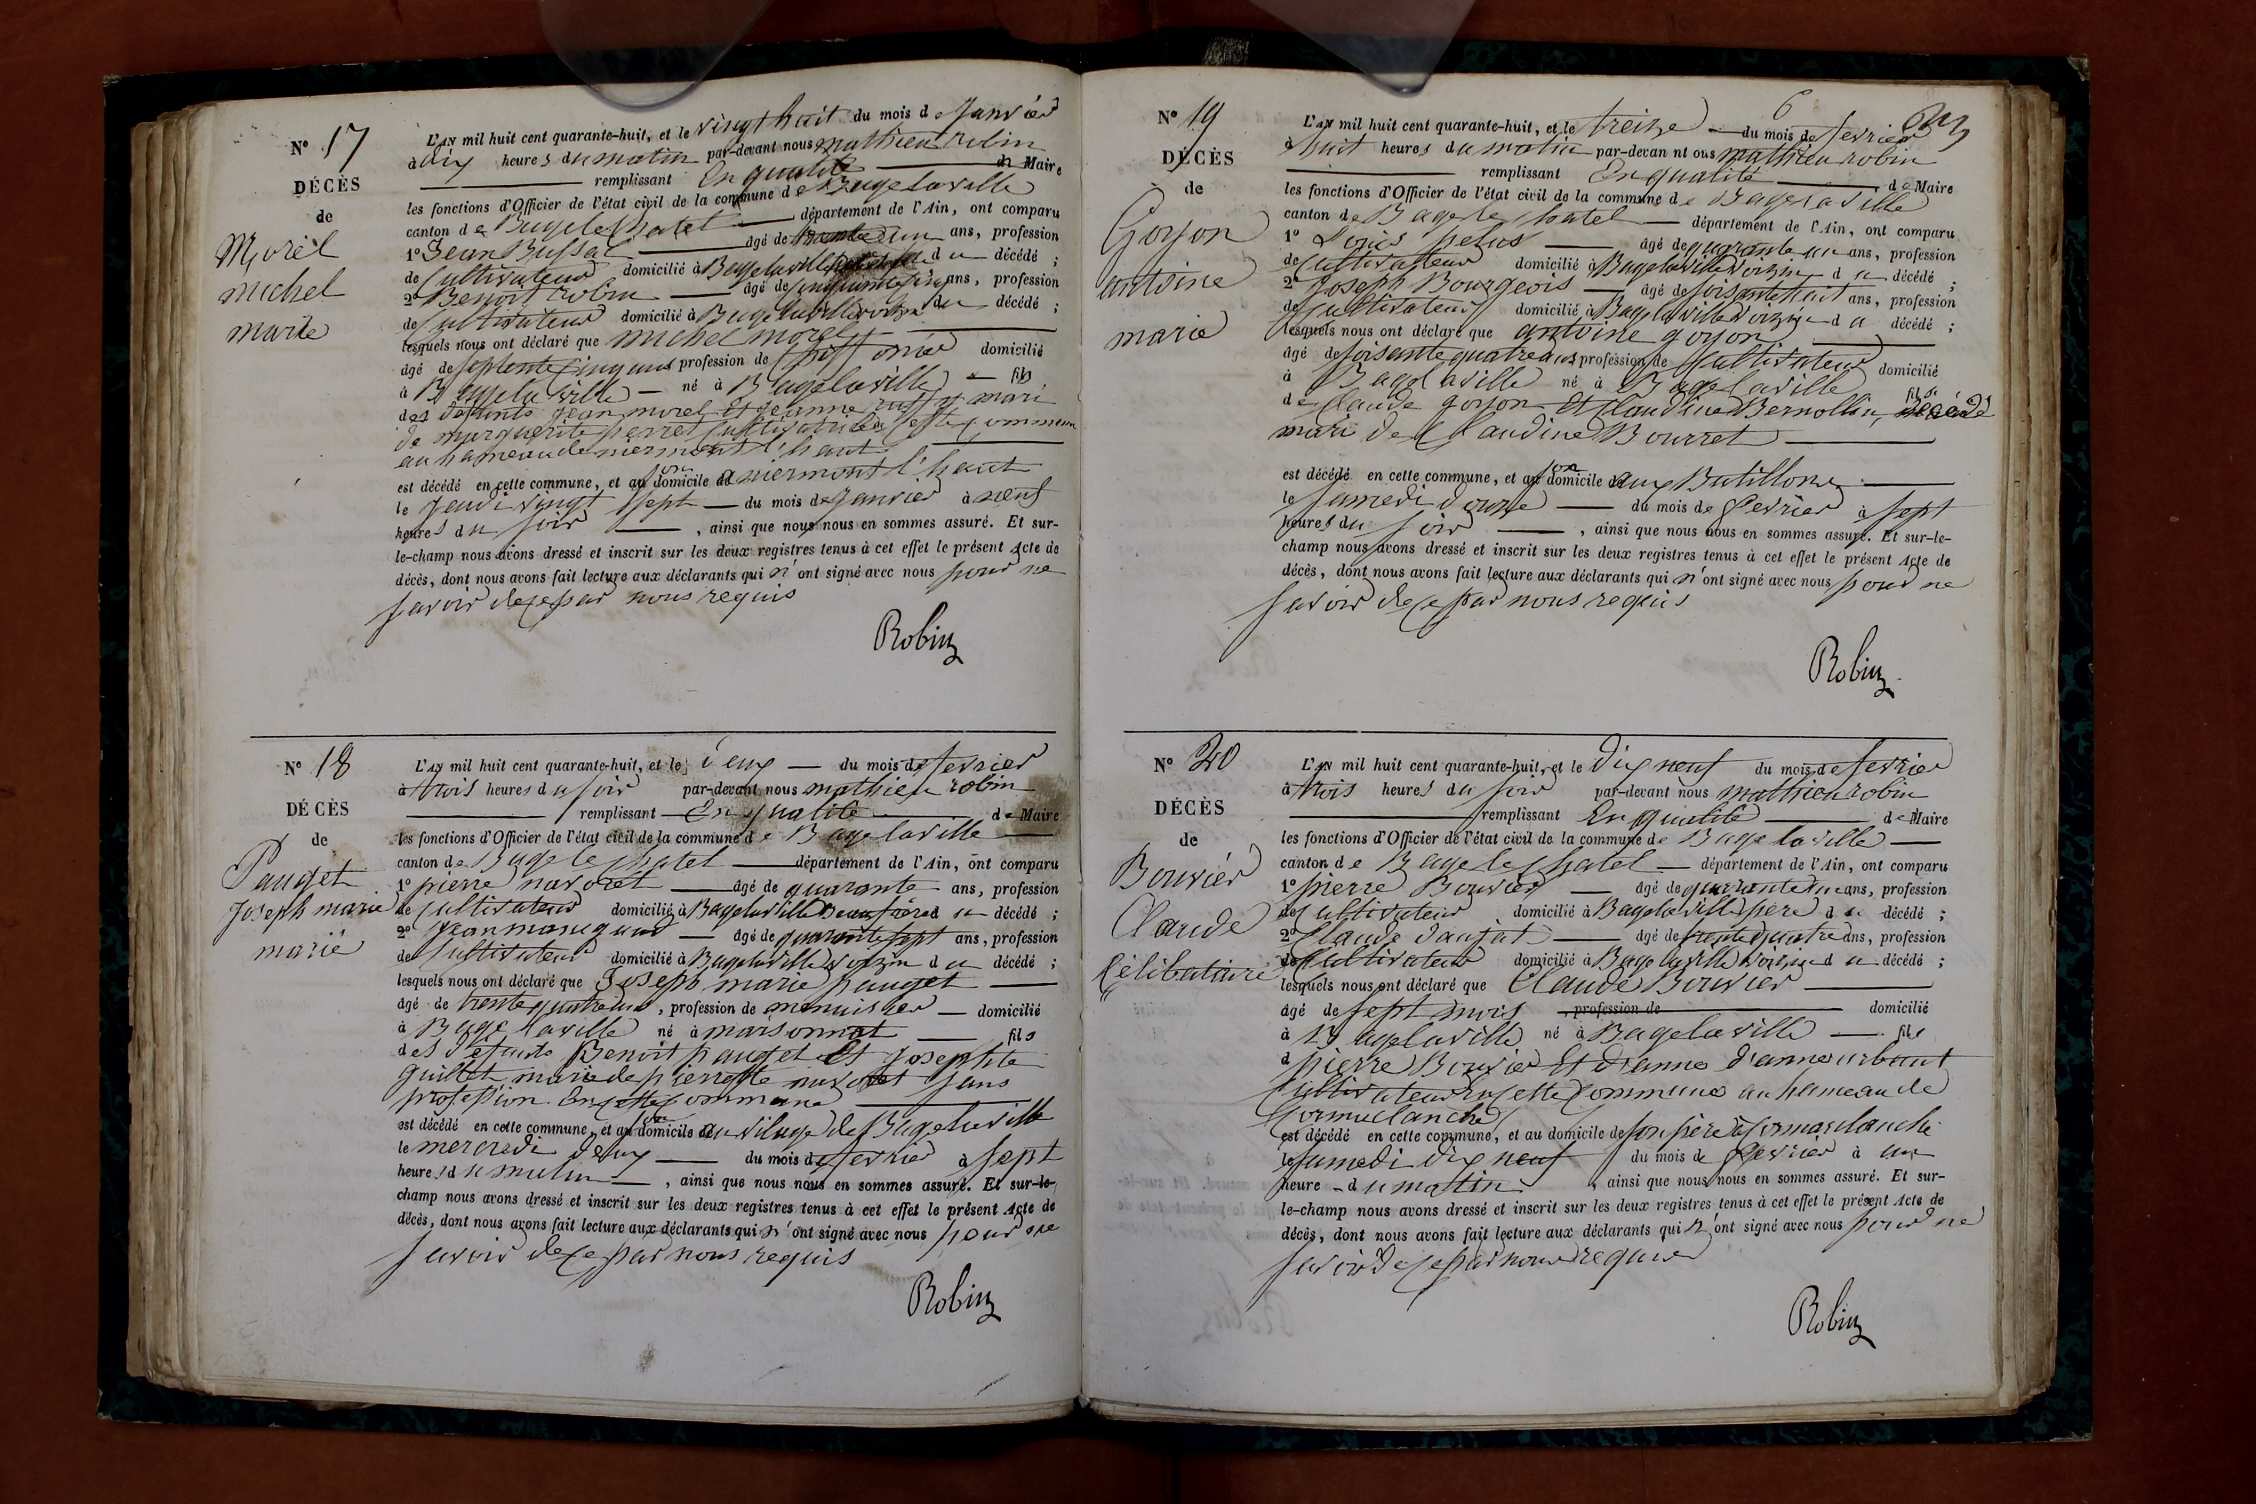 N° 17
DÉCÈS
de
Morel
michel
marie
L'AN mil huit cent quarante-huit, et le vingt huit du mois de Janvier
à dix heures du matin par-devant nous mathieu robin
remplissant En qualité de Maire
les fonctions d'Officier de l'état civil de la commune de Bagelaville
canton de Bagelechatel département de l'Ain, ont comparu
1° Jean Buffat âgé de ans, profession
de Cultivateur domicilié à Bagelaville du décédé ;
2° Benoit robin âgé de ans, profession
de Cultivateur domicilié à Bagelaville voizin du décédé ;
lesquels nous ont déclaré que michel morel
âgé de septente cinq ans profession de domicilié
à Bagelaville né à Bagelaville fils
des défunts Jean morel Et Jeanne mari
de marguerite perret Cultivatrice En cette Commune
au hameau de niermont l'haut
est décédé en cette commune, et au son domicile à niermont l'haut
le Jeudi vingt sept du mois de Janvier à neuf
heures du soir , ainsi que nous nous en sommes assuré. Et sur-
le-champ nous avons dressé et inscrit sur les deux registres tenus à cet effet le présent Acte de
décès, dont nous avons fait lecture aux déclarants qui n'ont signé avec nous pour ne
savoir de ce par nous requis
Robin
N° 18
DÉCÈS
de
Pauget
Joseph marie
marié
L'AN mil huit cent quarante-huit, et le deux du mois de fevrier
à trois heures du soir par-devant nous mathieu robin
remplissant En qualité de Maire
les fonctions d'Officier de l'état civil de la commune de Bagelaville
canton de Bagelechatel département de l'Ain, ont comparu
1° pierre navoret âgé de quarante ans, profession
de Cultivateur domicilié à Bagelaville Beaufrère du décédé ;
2° Jean âgé de quarante sept ans, profession
de Cultivateur domicilié à Bagelaville voizin du décédé ;
lesquels nous ont déclaré que Joseph marie pauget
âgé de trente quatre ans, profession de menuisier domicilié
à Bagelaville né à marsonnat fils
des défunts Benoit pauget Et Josephte
guillet marie de pierrette navoret sans
profession En cette Commune
est décédé en cette commune, et au son domicile au vilage de Bagelaville
le mercredi deux du mois de fevrier à sept
heures du matin , ainsi que nous nous en sommes assuré. Et sur-le-
champ nous avons dressé et inscrit sur les deux registres tenus à cet effet le présent Acte de
décès, dont nous avons fait lecture aux déclarants qui n'ont signé avec nous pour ne
savoir de ce par nous requis
Robin
6
N° 19
DÉCÈS
de
Goyon
antoine
marié
L'AN mil huit cent quarante-huit, et le treize du mois de fevrier
à huit heures du matin par-devan nt ous mathieu robin
remplissant En qualité de Maire
les fonctions d'Officier de l'état civil de la commune de Bagelaville
canton de Bagelechatel département de l'Ain, ont comparu
1° Louis pelus âgé de quarante un ans, profession
de Cultivateur domicilié à Bagelaville voizin du décédé ;
2° Joseph Bourgeois âgé de soisante huit ans, profession
de Cultivateur domicilié à Bagelaville voizin du décédé ;
lesquels nous ont déclaré que antoine goyon
âgé de soisante quatre ans profession de Cultivateur domicilié
à Bagelaville né à Bagelaville fils de
de Claude goyon Et Claudine Bernollin,
mari de Claudine Bourret
est décédé en cette commune, et au son domicile aux Butillons
le samedi douze du mois de fevrier à sept
heures du soir , ainsi que nous nous en sommes assuré. Et sur-le-
champ nous avons dressé et inscrit sur les deux registres tenus à cet effet le présent Acte de
décès, dont nous avons fait lecture aux déclarants qui n'ont signé avec nous pour ne
savoir de ce par nous requis
Robin
N° 20
DÉCÈS
de
Bouvier
Claude
Célibataire
L'AN mil huit cent quarante-huit, et le dix neuf du mois de fevrier
à trois heures du soir par-devant nous mathieu robin
remplissant En qualité de Maire
les fonctions d'Officier de l'état civil de la commune de Bagelaville
canton de Bagelechatel département de l'Ain, ont comparu
1° pierre Bouvier âgé de ans, profession
de Cultivateur domicilié à Bagelaville père du décédé ;
2° Claude âgé de trente quatre ans, profession
de Cultivateur domicilié à Bagelaville voizin du décédé ;
lesquels nous ont déclaré que Claude Bouvier
âgé de sept mois profession de domicilié
à Bagelaville né à Bagelaville fils
d pierre Bouvier Et d'anne
Cultivateur En cette Commune au hameau de
Cormaclanche
est décédé en cette commune, et au domicile de son père à Cormaclanche
le samedi dix neuf du mois de fevrier à un
heure du matin , ainsi que nous nous en sommes assuré. Et sur-
le-champ nous avons dressé et inscrit sur les deux registres tenus à cet effet le présent Acte de
décès, dont nous avons fait lecture aux déclarants qui n'ont signé avec nous pour ne
savoir de ce par nous requis
Robin